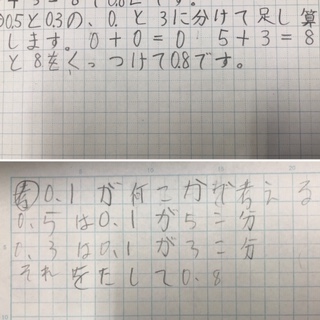 0.5と0.3の、0.と3に分けて足し算
します。0+0=0 5+3=8
と8をくっつけて0.8です。
考0.1が何こ分で考える
0.5は0.1が5こ分
0.3は0.1が3こ分
それをたして0.8